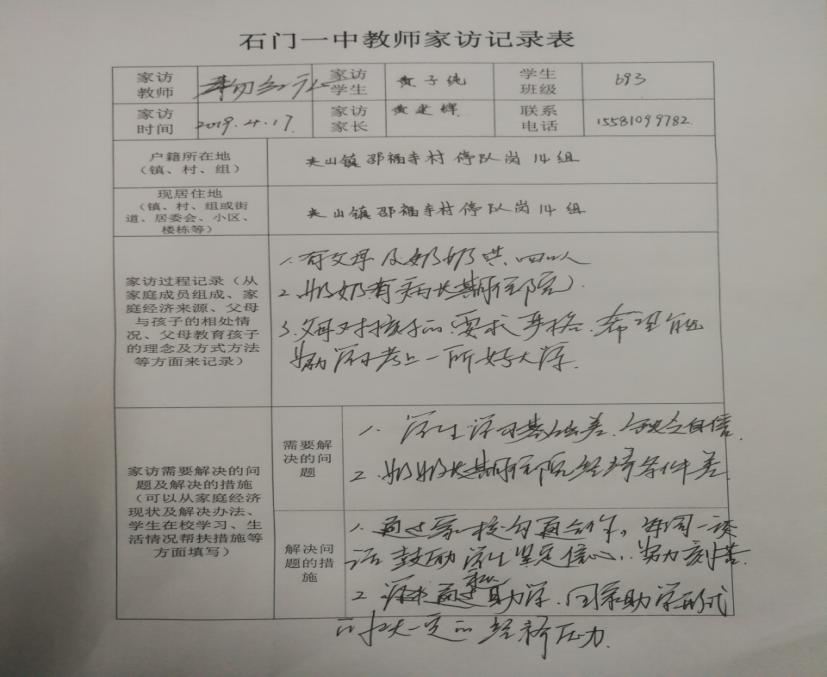 石门一中教师家访记录表
家访教师 家访学生 黄子纯 学生班级 693
家访时间 2019.4.17 家访家长 黄建辉 联系电话 15581099782
户籍所在地
（镇、村、组）
夹山镇 邵福寺村 停队岗 14组
现居住地
（镇、村、组或街
道、居委会、小区、
楼栋等）
夹山镇 邵福寺村 停队岗 14组
家访过程记录（从
家庭成员组成、家
庭经济来源、父母
与孩子的相处情
况、父母教育孩子
的理念及方式方法
等方面来记录）
1.有父母及奶奶共四人
2.奶奶有病长期住院
3.父母对孩子的要求严格.希望能
考上一所好大学.
家访需要解决的问
题及解决的措施
（可以从家庭经济
现状及解决办法、
学生在校学习、生
活情况帮扶措施等
方面填写）
需要解
决的问
题
1.学生学习基础差.缺乏自信.
2.奶奶长期住院经济条件差
解决问
题的措
施
1.通过家校沟通合作,
话鼓励学生坚定信心.努力刻苦.
2 通过助学.国家助学
一定的经济压力.